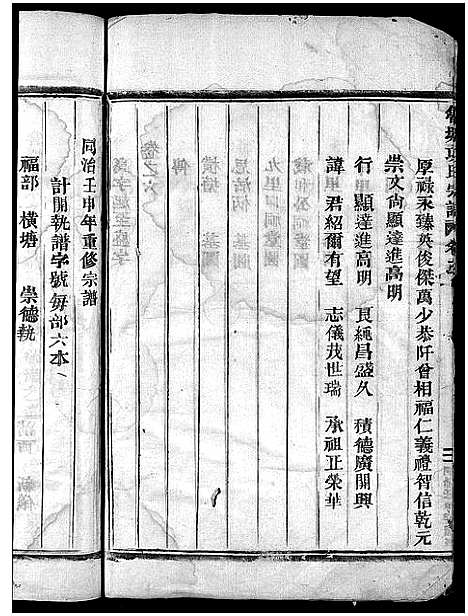 厚祿永臻英俊傑萬少恭阡曾相福仁義禮智信乾元
崇文尙顯達進高明
行 顯達進高明 良繩昌盛久 積德廣開興
諱 君紹爾有望 志儀茂世瑞 承祖正榮華
同治壬申年重修宗譜
計開執譜字號每部六本
福部 橫塘 崇德執